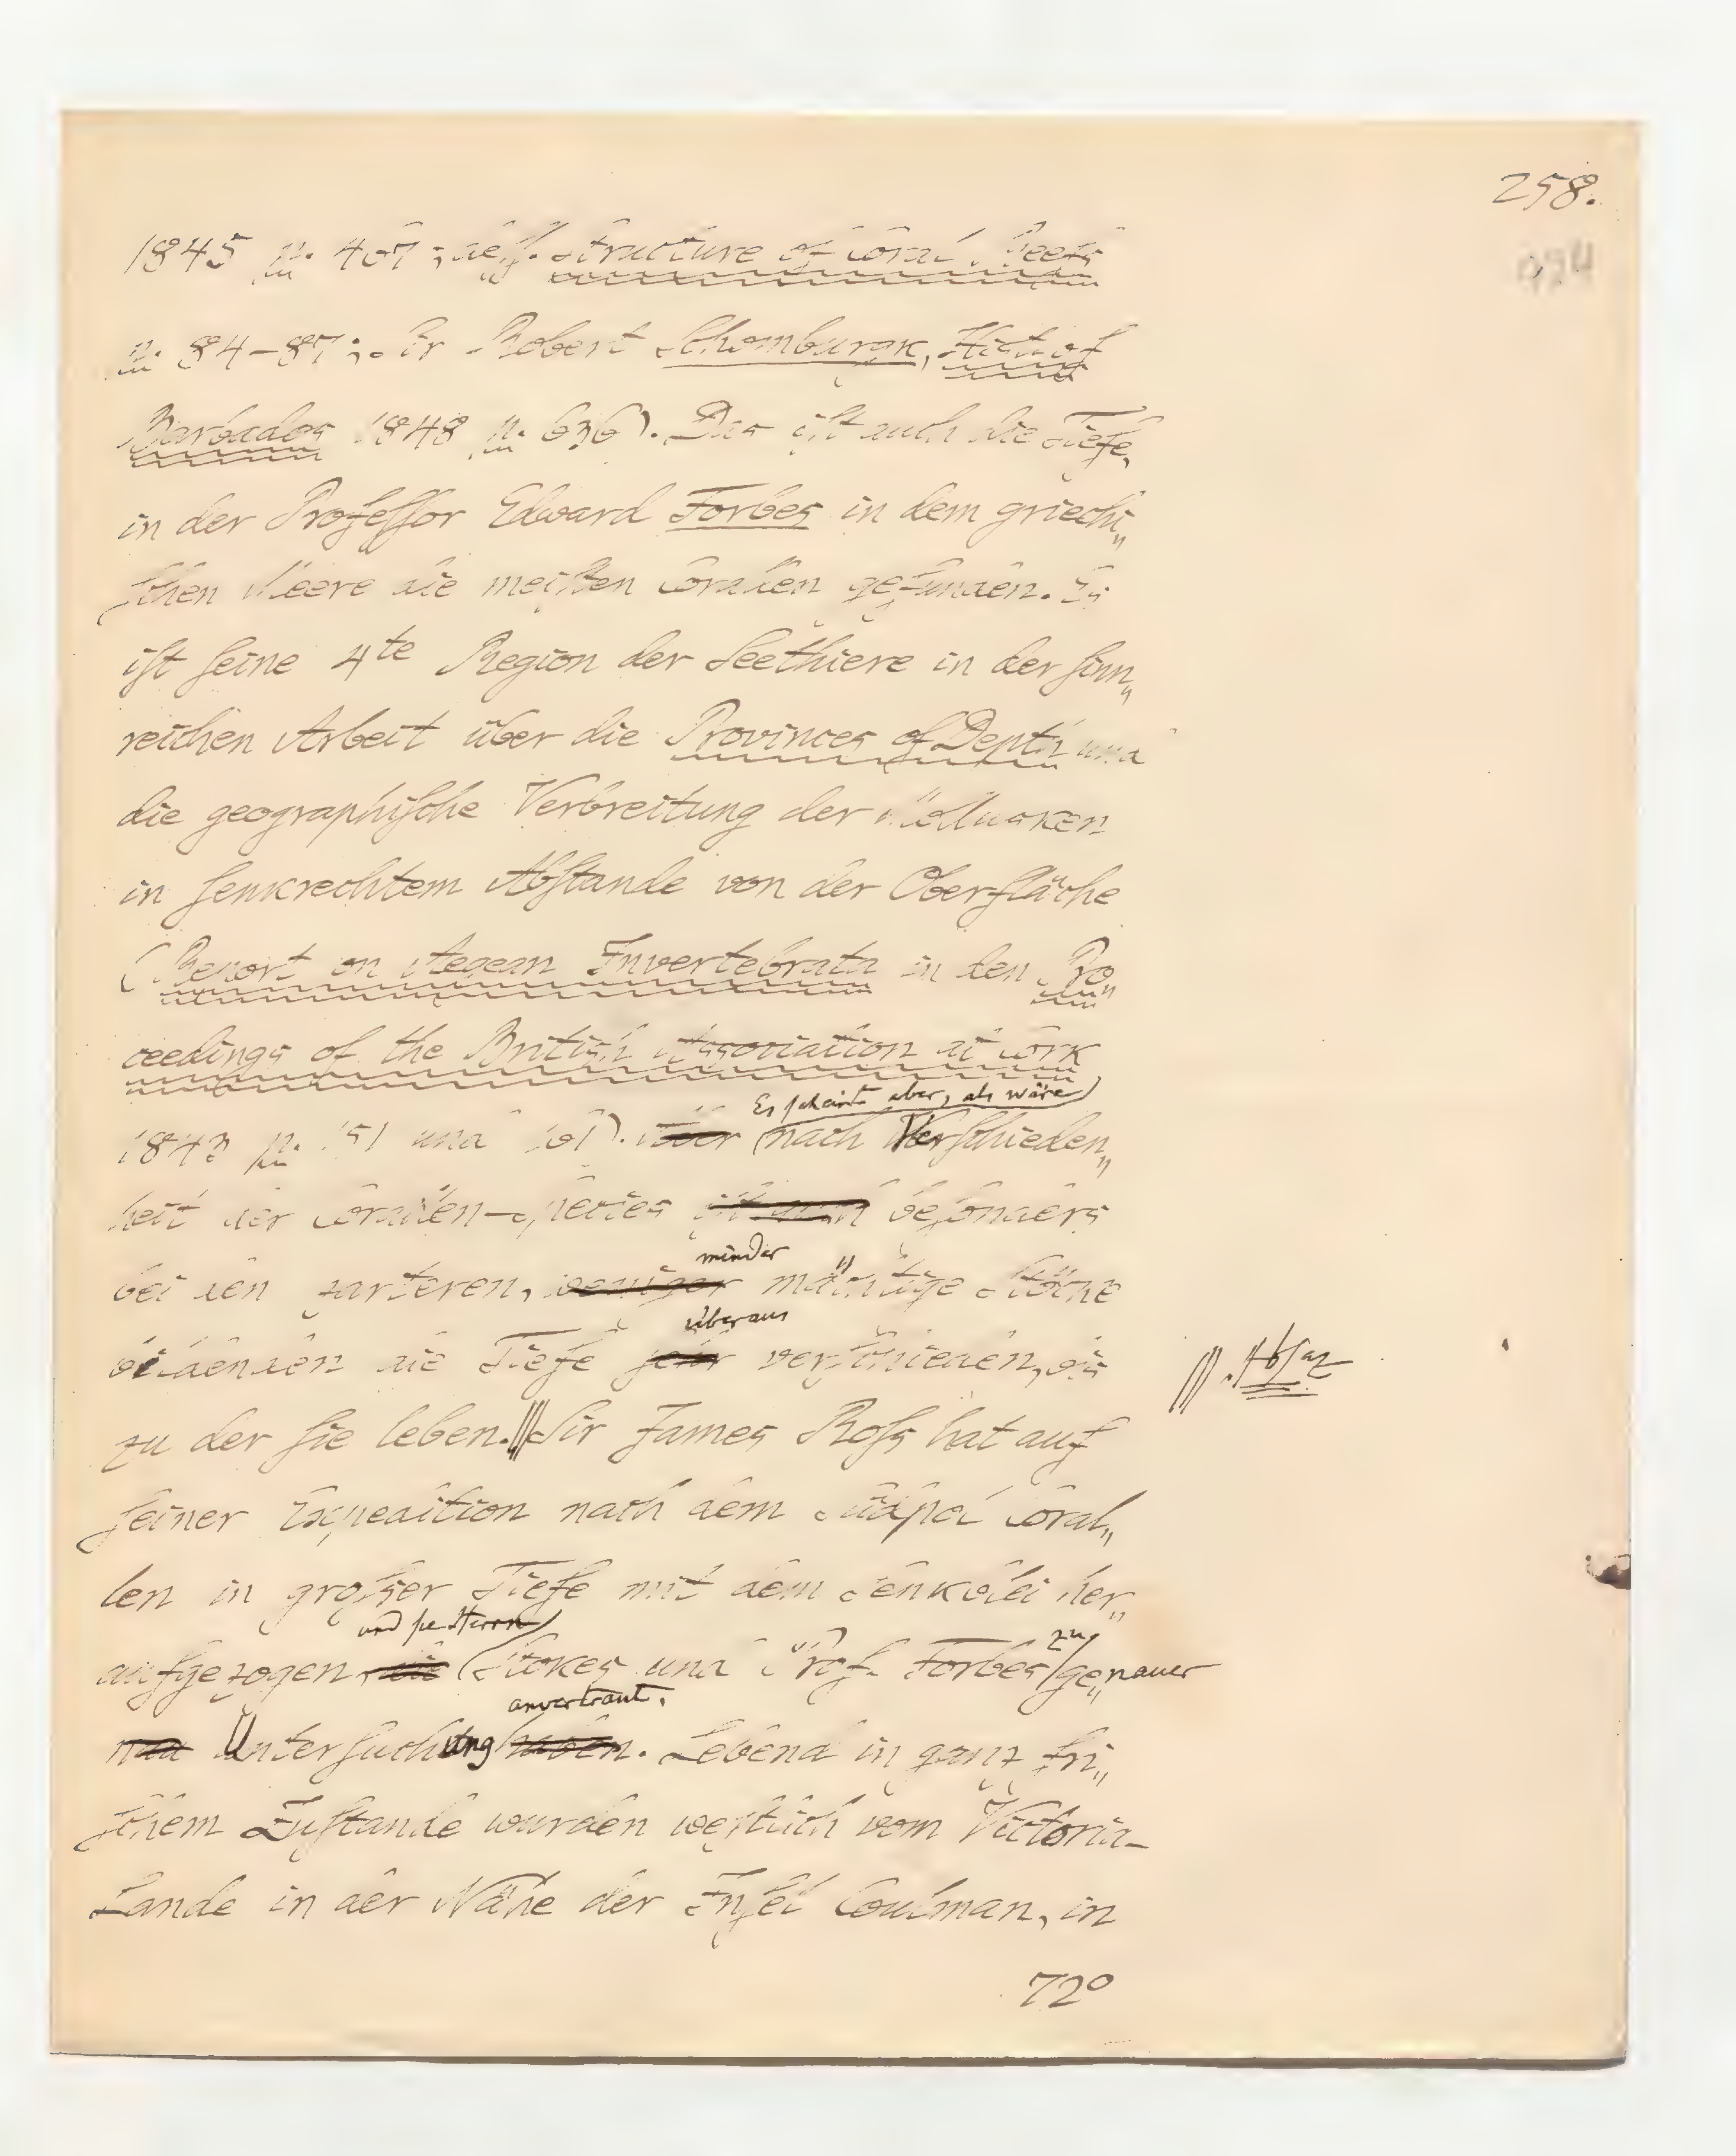 258.
1845 p. 467; deſſ. Structure of Coral Reefs
p. 84–87; Sir Robert Schomburgk, Hist. of
Barbados 1848 p. 636). Das iſt auch die Tiefe,
in der Profeſſor Edward Forbes in dem griechi„
ſchen Meere die meiſten Corallen gefunden. Es
iſt ſeine 4te Region der Seethiere in der ſinn„
reichen Arbeit über die Provinces of Depth und
die geographiſche Verbreitung der Mollusken
in ſenkrechtem Abſtande von der Oberfläche
(Report on Aegean Invertebrata in den Pro„
ceedings of the British Association at Cork
Es ſcheint aber, als wäre
1843 p. 151 und 161). nach Verſchieden„
heit der Corallen-Species besonders
minder
bei den zarteren, weniger mächtige Stöcke
überaus
bildenden die Tiefe ſehr verſchieden, bis
///. Absaz
zu der ſie leben./// Sir James Roſs hat auf
ſeiner Expedition nach dem Südpol Coral„
len in groſser Tiefe mit dem Senkblei her„
und ſie Herrn
zu
aufgezogen, die Stokes und Prof. Forbes genauer
anvertraut.
Unterſuchung haben. Lebend in ganz fri„
ſchem Zuſtande wurden weſtlich vom Victoria-
Lande in der Nähe der Inſel Coulman, in
72°